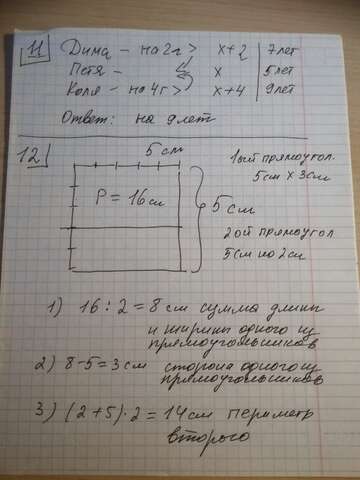 11 Дима - на 2 г > x+2 7 лет
Петя - x 5 лет
Коля - на 4 г > x+4 9 лет
Ответ: на 9 лет
12
5 см
P = 16 см
5 см
1ый прямоугол.
5 см x 3 см
2ой прямоугол
5 см по 2 см
1) 16 : 2 = 8 см сумма длины
и ширины одного из
прямоугольников
2) 8-5=3 см сторона одного из
прямоугольников
3) (2+5)·2=14 см периметр
второго